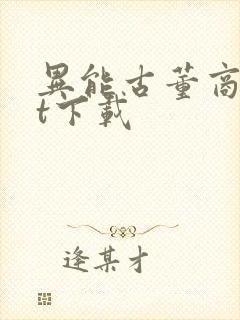 異能古董商
t下載
逢某才